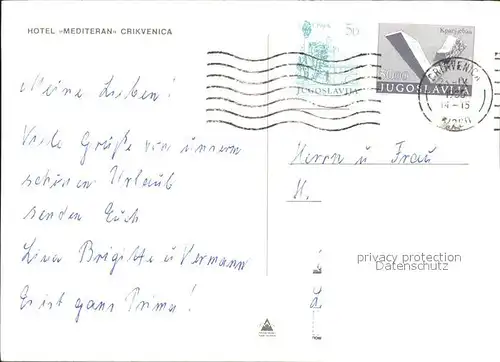 HOTEL «MEDITERAN» CRIKVENICA
Meine Lieben!
Viele Grüße von unserm
schönen Urlaub
senden Euch
Lina Brigitte u Hermann
Es ist ganz Prima!
50
JUGOSLAVIJA
JUGOSLAVIJA
CRIKVENICA
14-15
Herrn u Frau
H.
privacy protection
Datenschutz